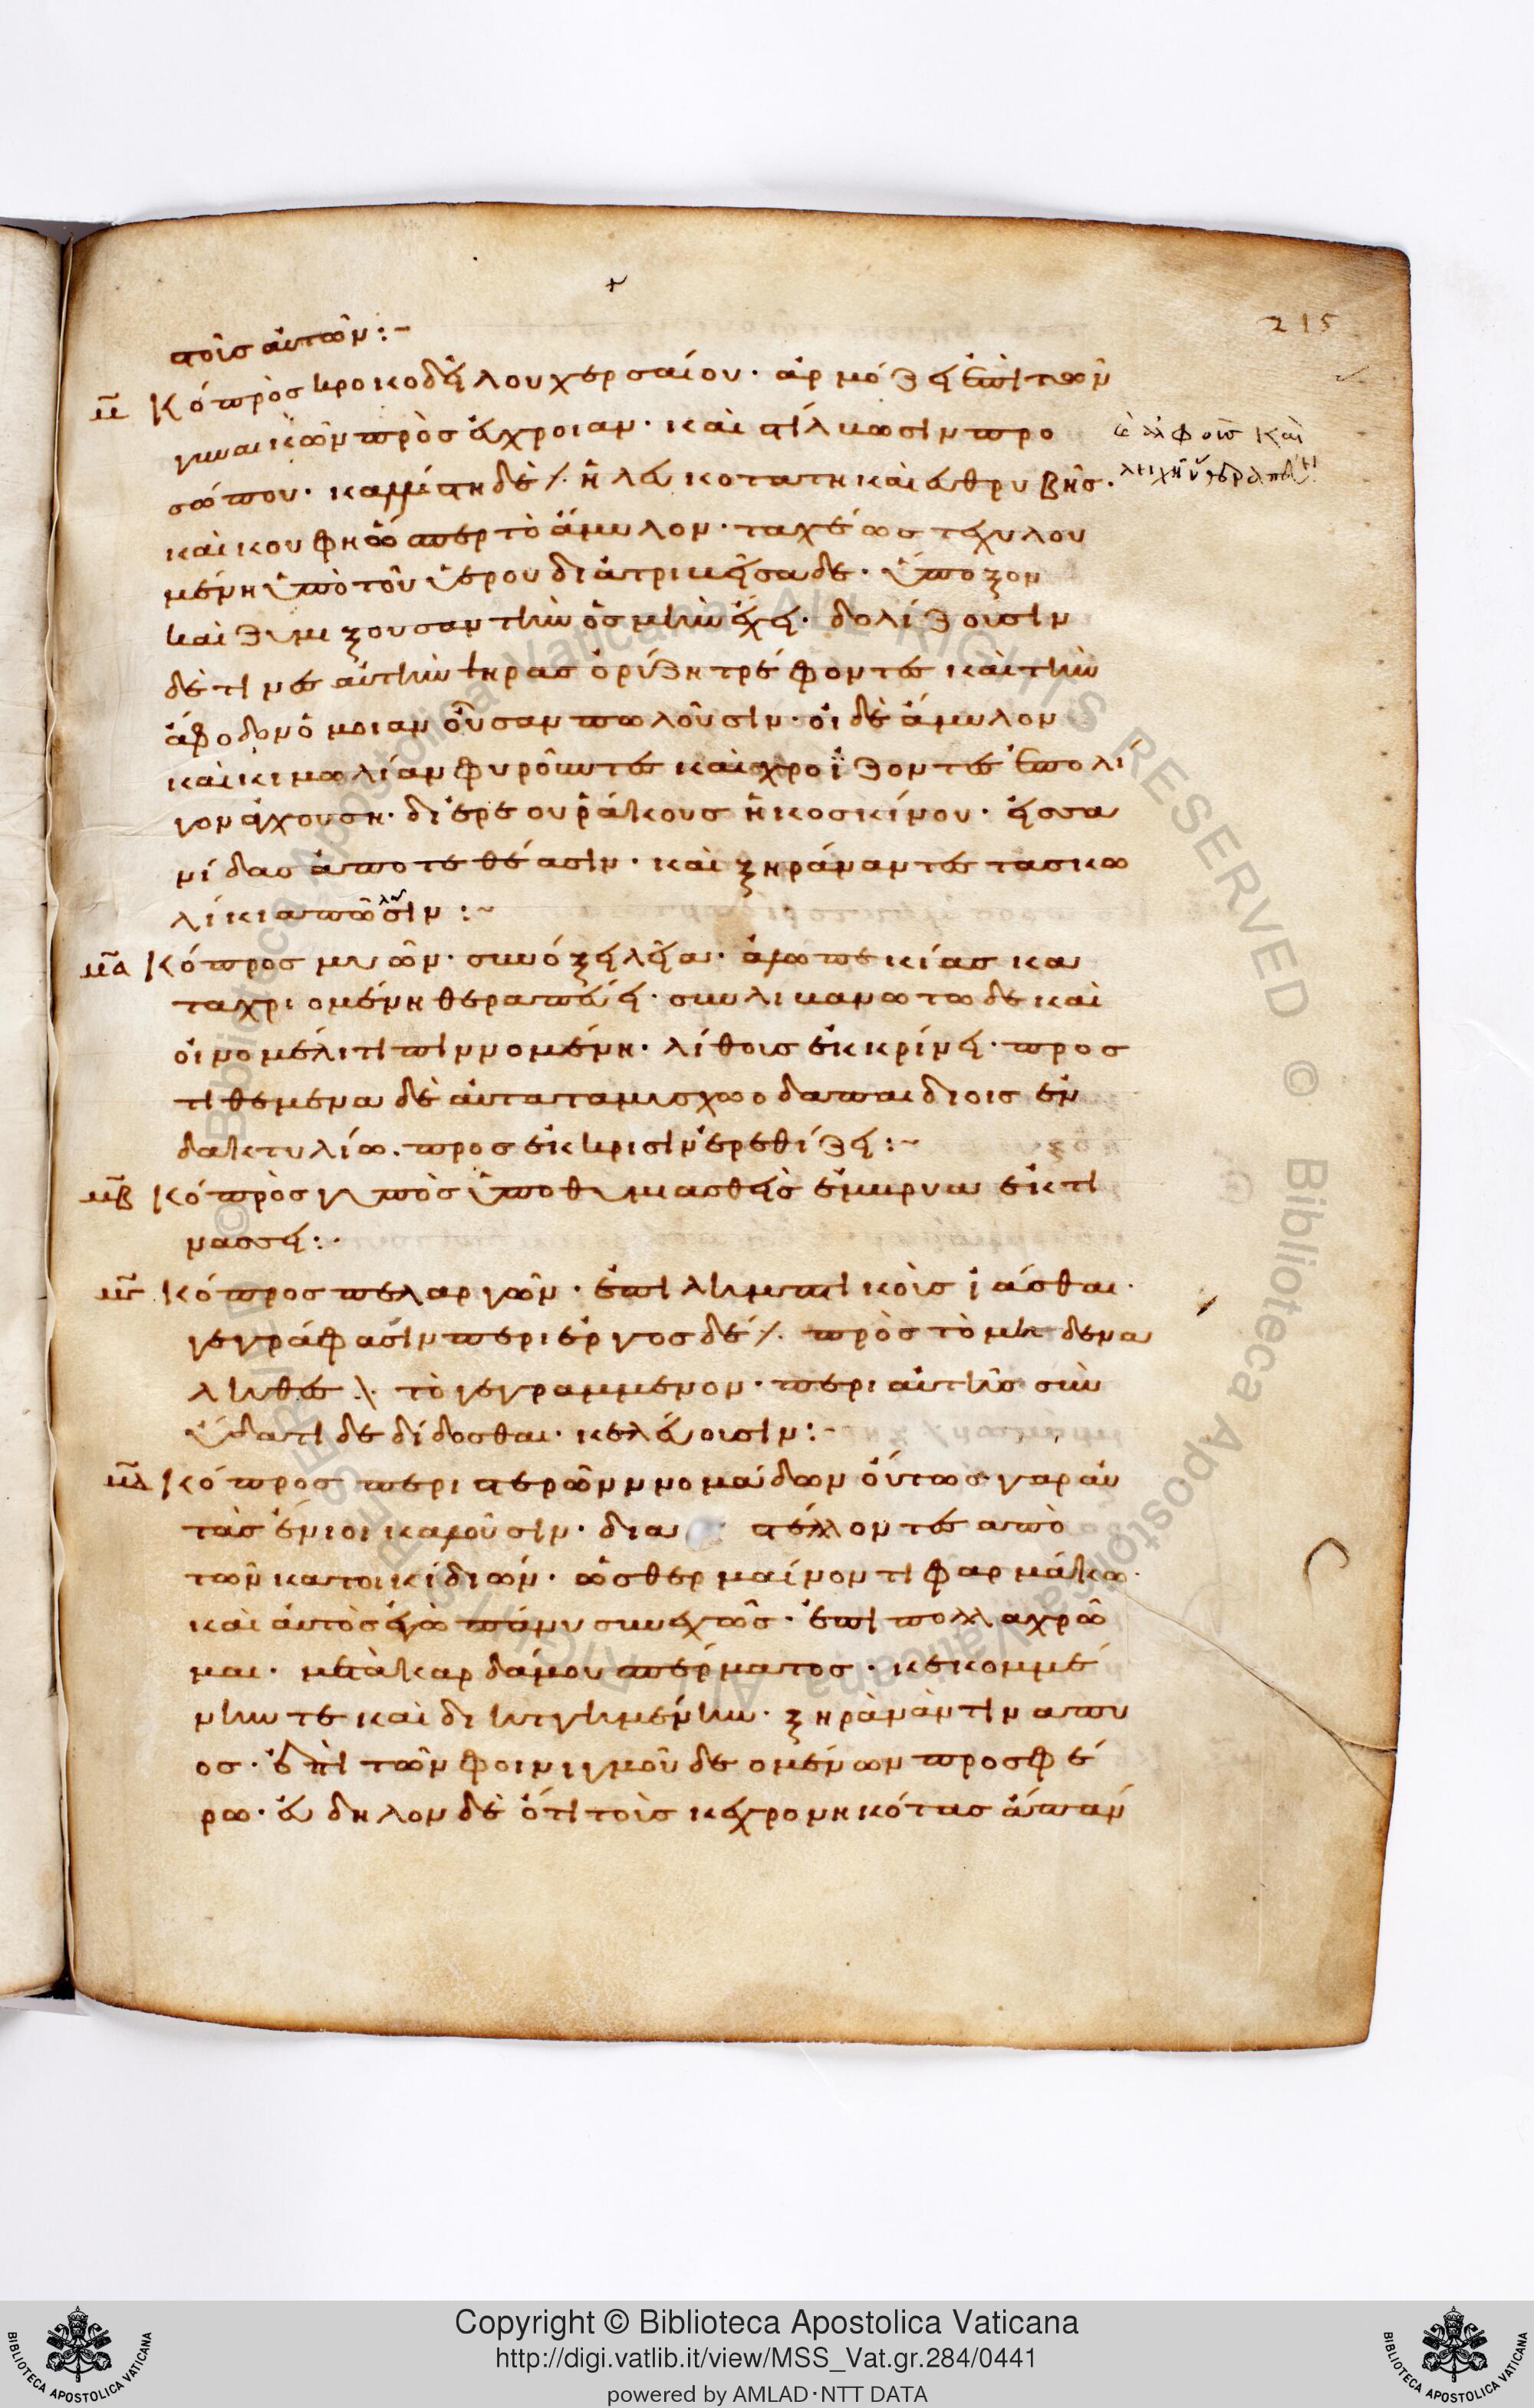 215
ποῖς αὐτῶν :-
μ Κόπρος κροκοδείλου χερσαίου · ἁρμόζει ἐπὶ τῶν
γυναικῶν πρὸς εὔχροιαν · καὶ στίλκωσιν προ
σώπου · καλλίστη δὲ ἡ λευκοτάτη καὶ εὐθρυβής ·
ἀλφοὺς καὶ
λειχῆν θεραπεύει
καὶ κούφη ὥσπερ τὸ ἄμυλον · ταχέως τε χυλου
μένη ὑπὸ τοῦ ὑγροῦ διατριμείσα δὲ · ὕποξον
καὶ ζυμίζουσαν τὴν ὀσμὴν ἔχει · δολίζουσιν
δὲ τινὲς αὐτὴν ψήρας ὀρύζη τρέφοντες καὶ τὴν
ἄφοδον ὁμοίαν οὖσαν πωλοῦσιν · οἱ δὲ ἄμυλον
καὶ κιμωλίαν φυρῶντες καὶ χροΐζοντες ἐπ ὀλί
γον ἀγχούση · δι ἀραιοῦ κοσκίνου ·
μίδας ἀποτεθέασιν · καὶ ξηράναντες τὰ σκω
λίκια πωλοῦσιν :-
μα Κόπρος μυῶν · σὺν ὄξει λεῖα · ἀλωπεκίας κα
ταχριομένη θεραπεύει · σὺν λιβανωτῷ δὲ καὶ
οἰνομέλιτι πινομένη · λίθους ἐκκρίνει · προσ
τιθέμενα δὲ αὐτὰ τὰ μυόχωδα παιδίοις ἐν
δακτυλίω · πρὸς ἔκκρισιν ἐρεθίζει :-
μβ Κόπρος γυπὸς ὑποθυμιαθεὶς ἔμβρυα ἐκτι
νάσσει :-
μγ Κόπρος πελαργῶν · ἐπιλημπτικοῖς ἰάσθαι ·
γεγράφασιν περιέργως δὲ πρὸς τὸ μηδὲν ἀ
ληθὲς τὸ γεγραμμένον · περὶ αὐτῆς σὺν
ὕδατι δὲ δίδοσθαι · κελεύουσιν :-
μδ Κόπρος περιστερῶν νομάδων οὕτως γὰρ αὐ
τὰς ἔνιοι καλοῦσιν · διαστέλλοντες ἀπὸ
τῶν κατοικιδίων · ὡς θερμαίνοντι φαρμάκω ·
καὶ αὐτὸς ἐγὼ πάνυ συνεχῶς · ἐπὶ πολλὰ χρῶ
μαι · μετὰ καρδάμου σπέρματος · κεκομμέ
νην τε καὶ διηττημένην · ξηρὰν ἀντὶ νάπυ
ος · ἐπὶ τῶν φοινιγμοῦ δεομένων προσφέ
ρω · εὔδηλον δὲ ὅτι τοῖς κεχρονηκότας ἅπαν
Copyright © Biblioteca Apostolica Vaticana
http://digi.vatlib.it/view/MSS_Vat.gr.284/0441
powered by AMLAD·NTT DATA
BIBLIOTECA APOSTOLICA VATICANA
BIBLIOTECA APOSTOLICA VATICANA